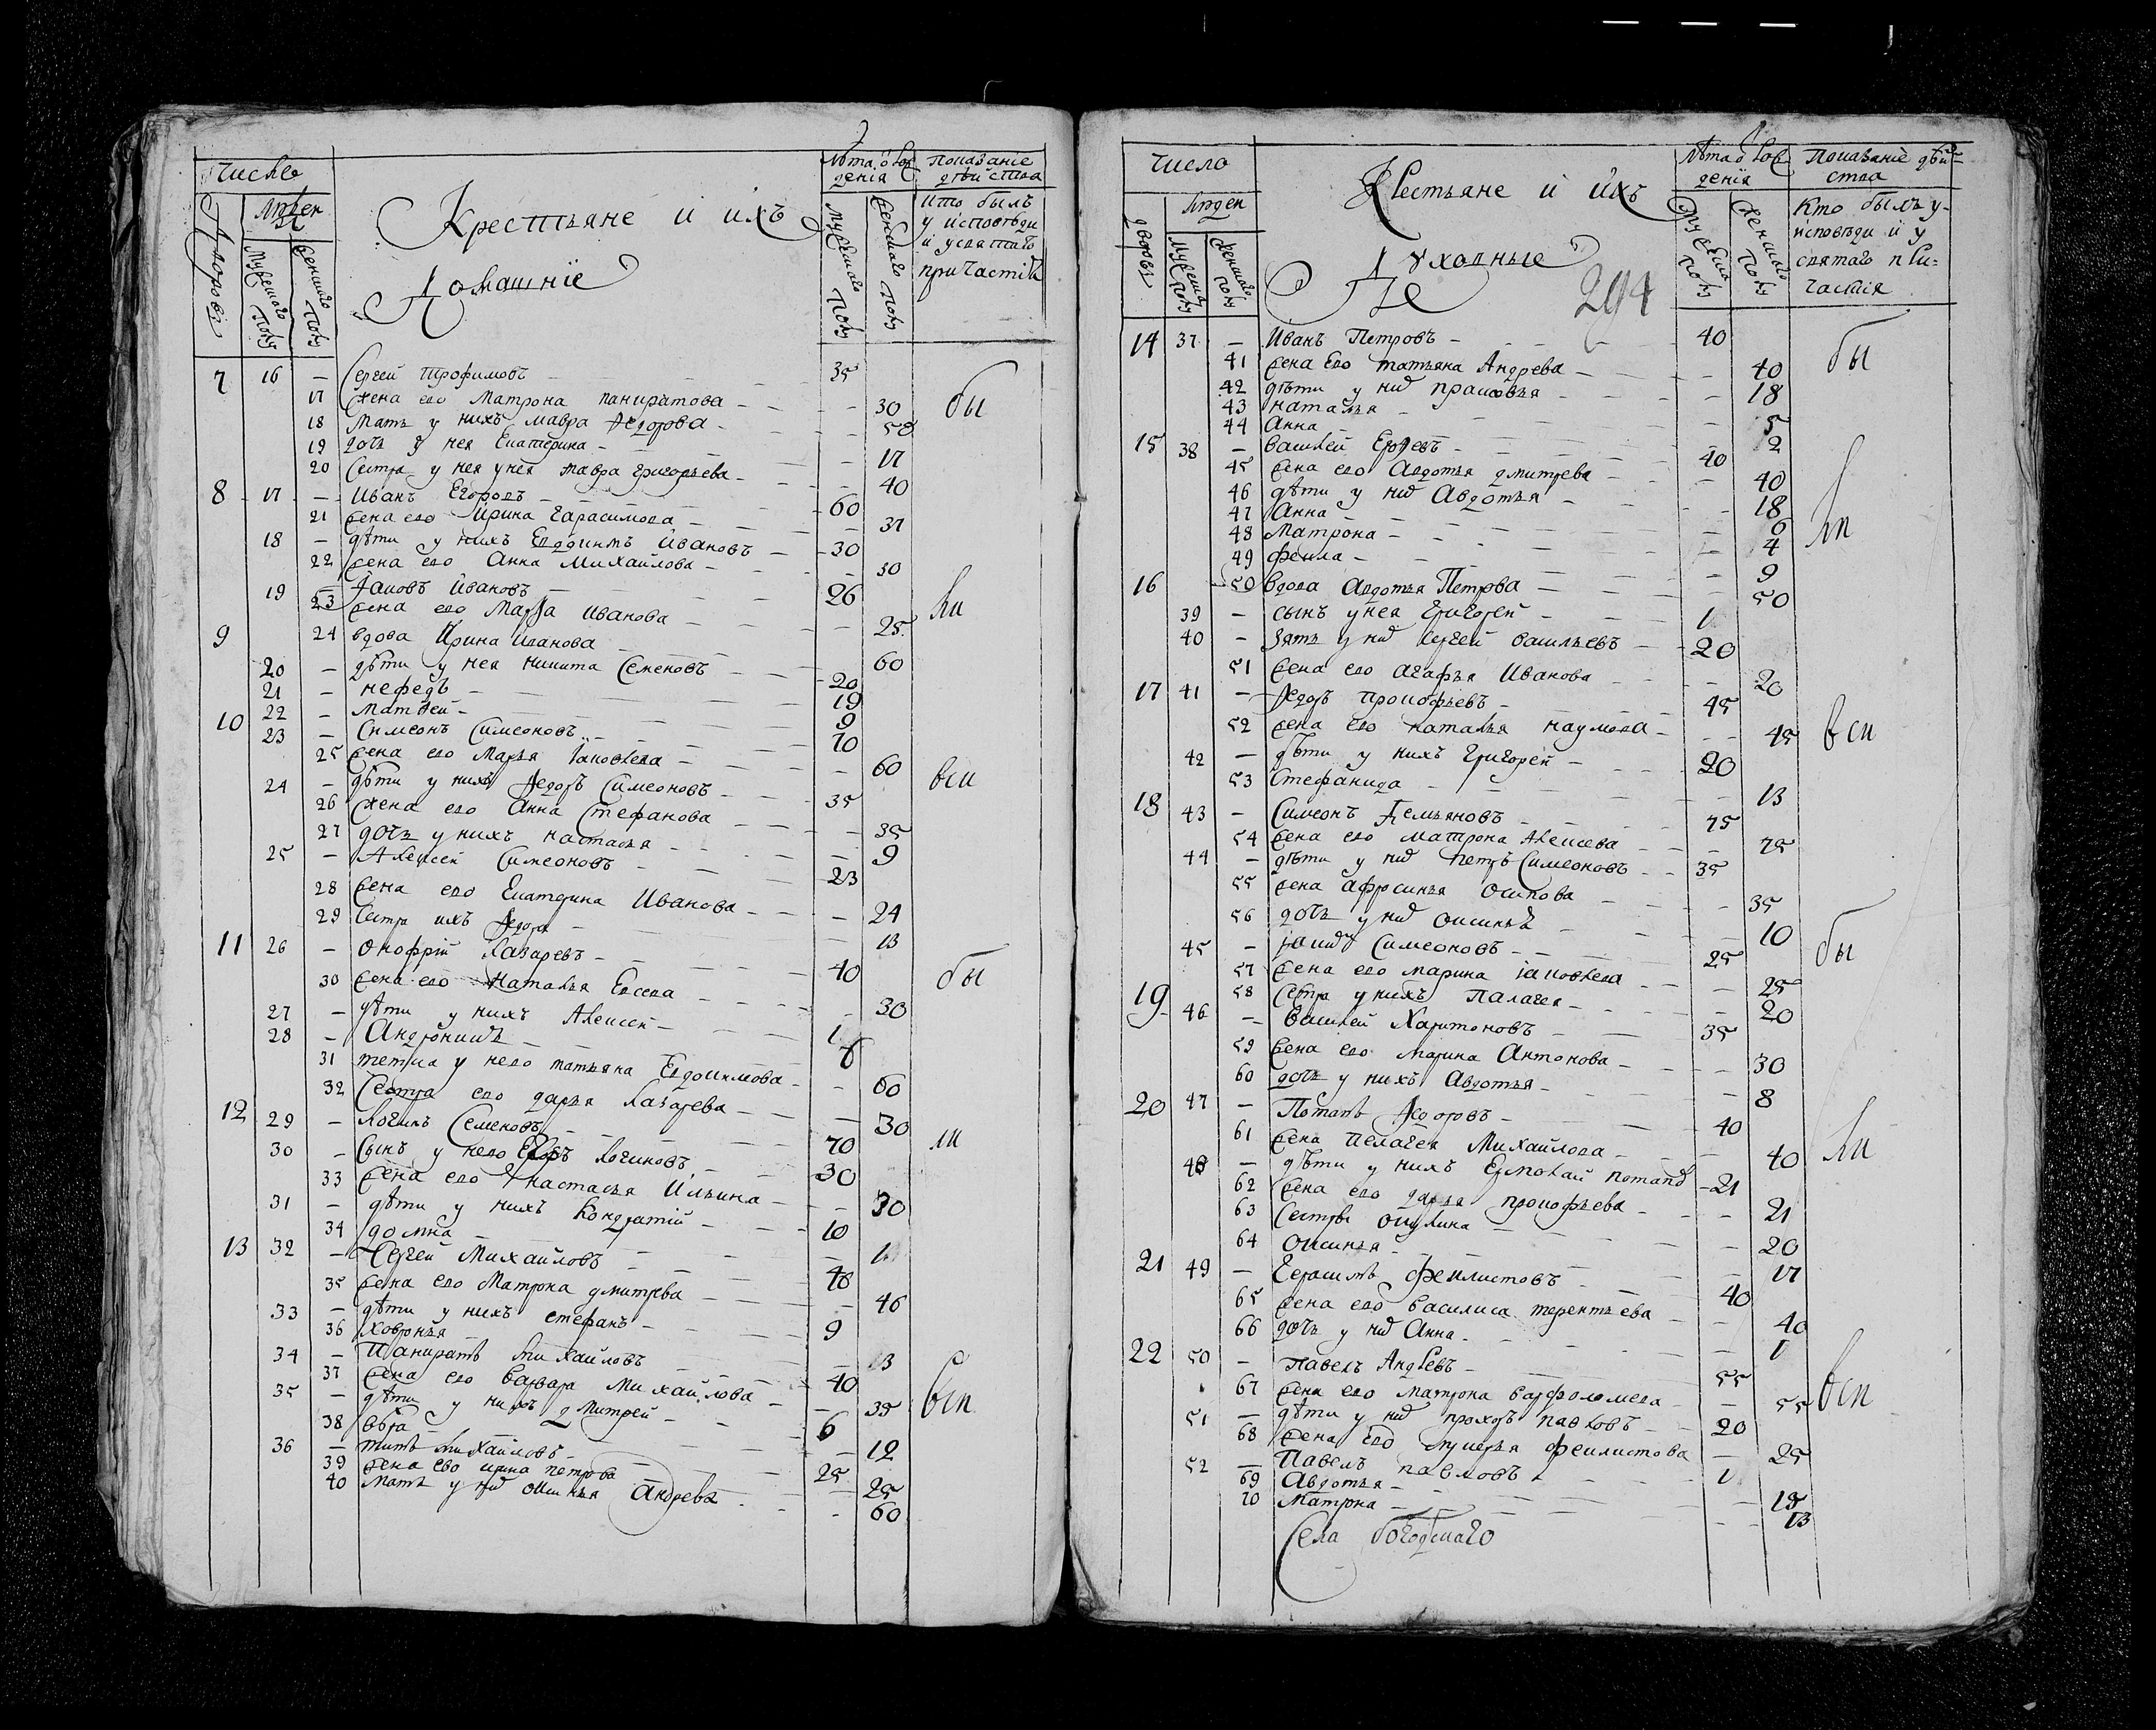 Число
Людей
Дворовъ
Мужеска полу
Женскаго полу
Крестьяне и ихъ
Домашніе
Лѣта о рож
денія
Мужескаго полу
Женскаго полу
Показаніе
дѣйства
Кто былъ
у исповѣди
и у святаго
причастія
7 16 — Сергей Трофимовъ 35
17 жена ево Матрона Панкратова 30 бы
18 мать у нихъ Мавра Федорова 50
19 дочь у нея Екатерина 17
20 сестра у нея Мавра Григорьева 40
8 17 — Иванъ Егоровъ 60
21 жена ево Ирина Гарасимова 37
18 — дѣти у нихъ Евдокимъ Ивановъ 30
22 жена ево Анна Михайлова 30
19 — Іаковъ Ивановъ 26
23 жена ево Марфа Иванова 25 ли
9 24 вдова Ирина Иванова 60
20 — дѣти у нея Никита Семеновъ 20
21 — Нефедъ 19
22 — Матвей 9
10 23 — Симеонъ Симеоновъ 70
25 жена ево Марья Іаковлева 60
24 — дѣти у нихъ Федоръ Симеоновъ 35 вси
26 жена ево Анна Стефанова 35
27 дочь у нихъ Настасья 9
25 — Алексей Симеоновъ 23
28 жена ево Екатерина Иванова 24
29 сестра ихъ Федора 13
11 26 — Онофрій Лазаревъ 40
30 жена ево Наталья Евсева 30 бы
27 — дѣти у нихъ Алексей 1
28 — Андроникъ
31 тетка у нево Татьяна Евдокимова 60
32 сестра ево Дарья Лазарева 30
12 29 — Логинъ Семеновъ 70 ли
30 — сынъ у нево Егоръ Логиновъ 30
33 жена ево Настасья Ильина 30
31 — дѣти у нихъ Кондратій 10
34 Домна 1
13 32 — Сергей Михайловъ
35 жена ево Матрона Дмитрева 46
33 — дѣти у нихъ Стефанъ 9
36 Ховронья 13
34 — Панкратъ Михайловъ 40
37 жена ево Варвара Михайлова вси
35 — дѣти у нихъ Дмитрей 6
38 Вера 12
36 — Титъ Михайловъ 25
39 жена ево Ирина Петрова 25
40 мать у них Оксинья Андрева 60
Число
Людей
дворовъ
Мужеска полу
Женскаго полу
Крестьяне и ихъ
Духовные
294
Лѣта о рож
денія
Мужеска полу
Женскаго полу
Показаніе дѣй-
ства
Кто былъ у
исповѣди и у
святаго при-
частія
14 37 — Иванъ Петровъ 40
41 жена ево Татьяна Андрева 40 бы
42 дѣти у них Прасковья 18
43 Наталья 5
44 Анна 2
15 38 — Василей Ерофевъ 40
45 жена ево Авдотья Дмитрева 40
46 дѣти у них Авдотья 18
47 Анна 6
48 Матрона 4 ли
49 Фекла 9
16 50 вдова Авдотья Петрова 50
39 — сынъ у нея Григорей 1
40 — зять у них Сергей Васильевъ 20
51 жена ево Агафья Иванова 20
17 41 — Федоръ Прокофьевъ 45
52 жена ево Наталья Наумова 45 вси
42 — дѣти у нихъ Григорей 20
53 Стефанида 13
18 43 — Симеонъ Демьяновъ 75
54 жена ево Матрона Алексева 75
44 — дѣти у них Петръ Симеоновъ 35
55 жена Афросинья Осипова 35
56 дочь у них Оксинья 10
45 — Симеоновъ 25 бы
57 жена ево Марина Іаковлева 25
58 сестра у нихъ Палагея 20
19 46 — Василей Харитоновъ 35
59 жена ево Марина Антонова 30
60 дочь у нихъ Авдотья 8
20 47 — Потапъ Федоровъ 40
61 жена Пелагея Михайлова 40 ли
48 — дѣти у нихъ Ермолай Потапо 21
62 жена ево Дарья Прокофьева 21
63 сестры Окулина 20
64 Оксинья 17
21 49 — Герасимъ Феклистовъ 40
65 жена ево Василиса Терентьева 40
66 дочь у них Анна 1
22 50 — Павелъ Андревъ 55
67 жена ево Матрона Варфоломева 55 вси
51 — дѣти у них Прохоръ Павловъ 20
68 жена ево Лукерья Феклистова 25
52 — Павелъ Павловъ 1
69 Авдотья
70 Матрона 13
Села Богородскаго